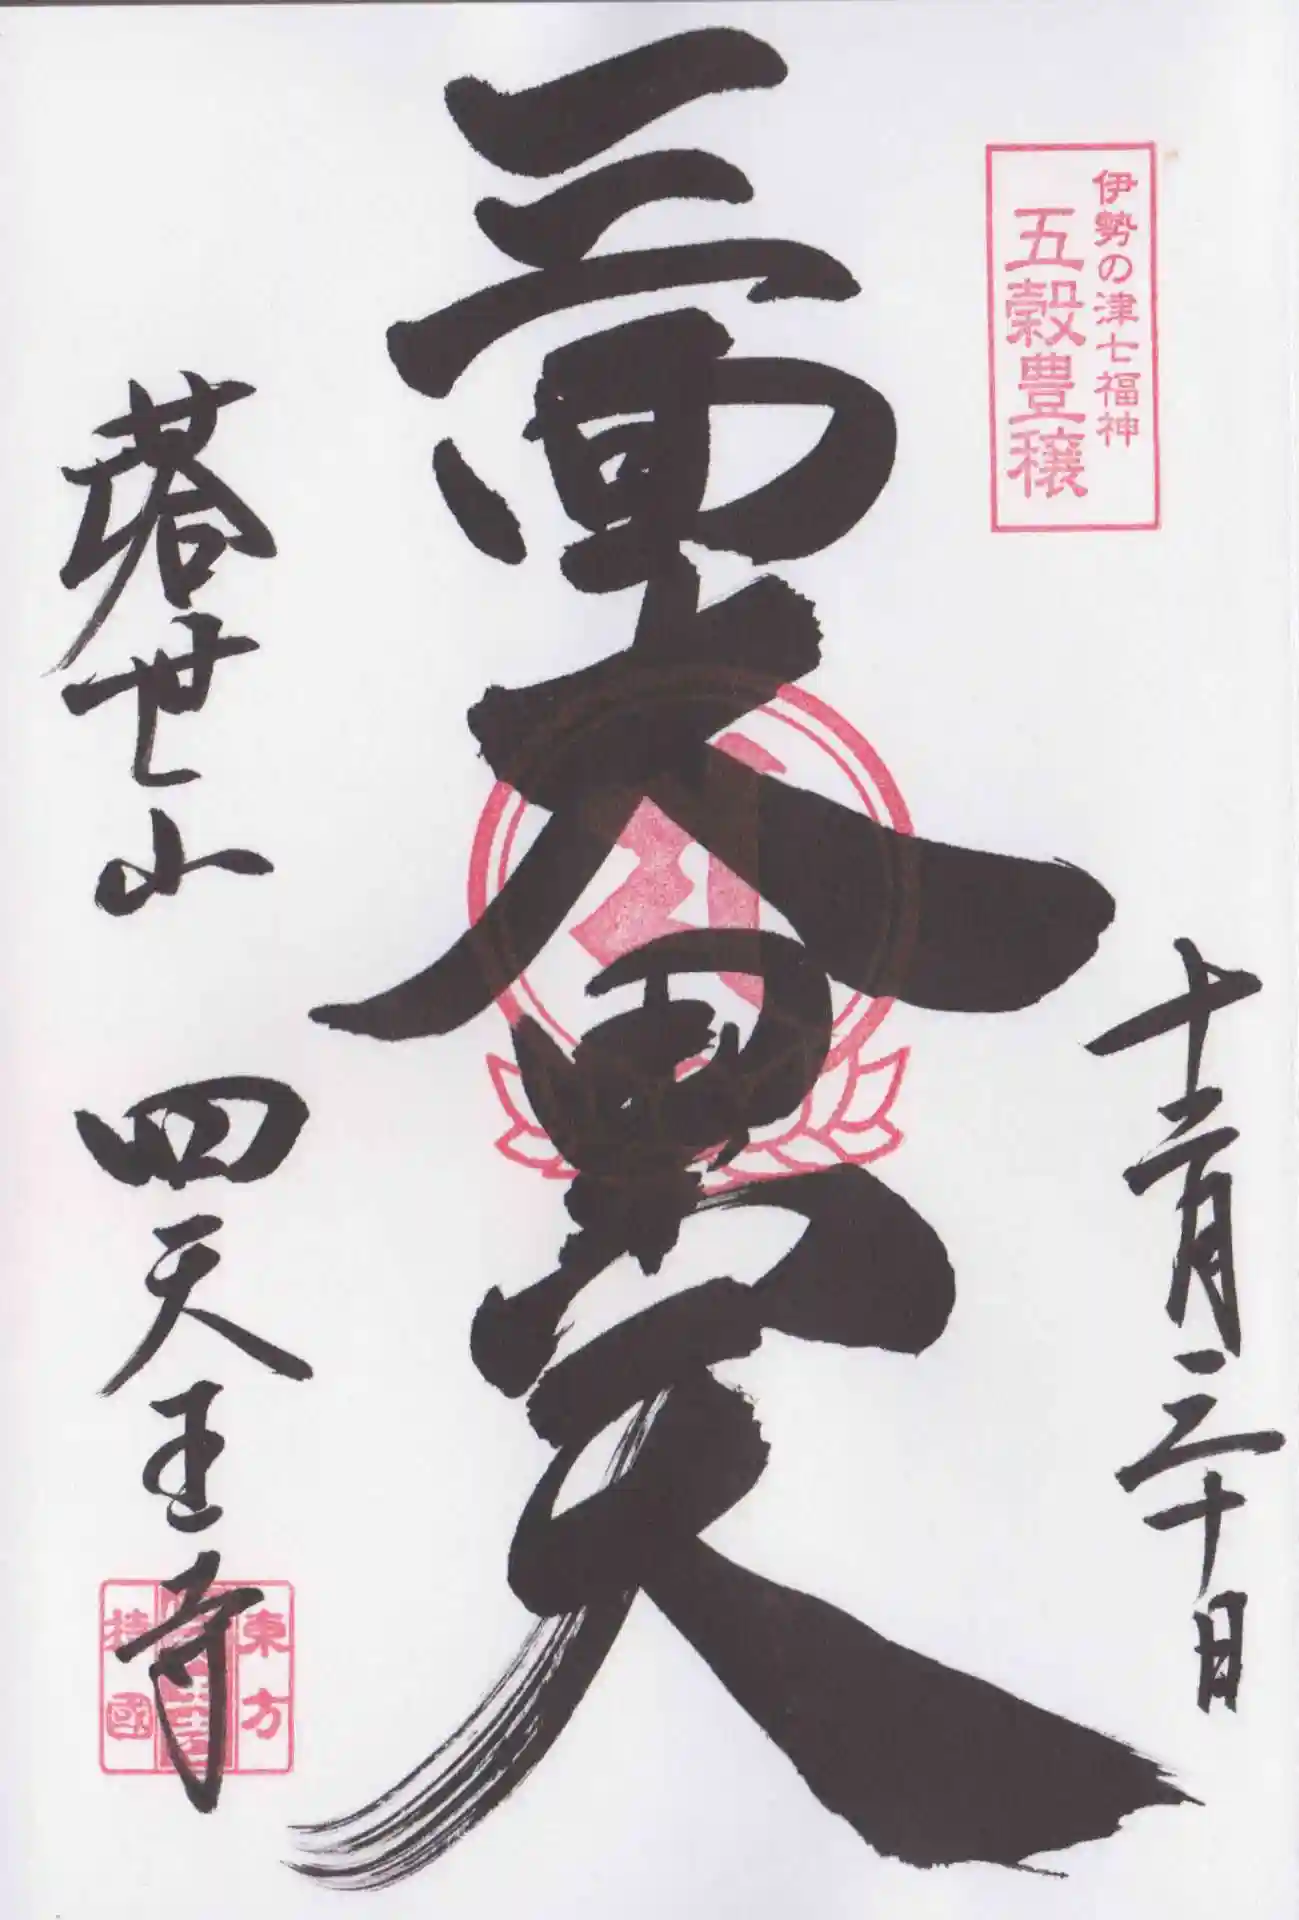 伊勢の津七福神
五穀豊穣
十二月三十日
三面大黒天
塔世山 四天王寺
東方
持國